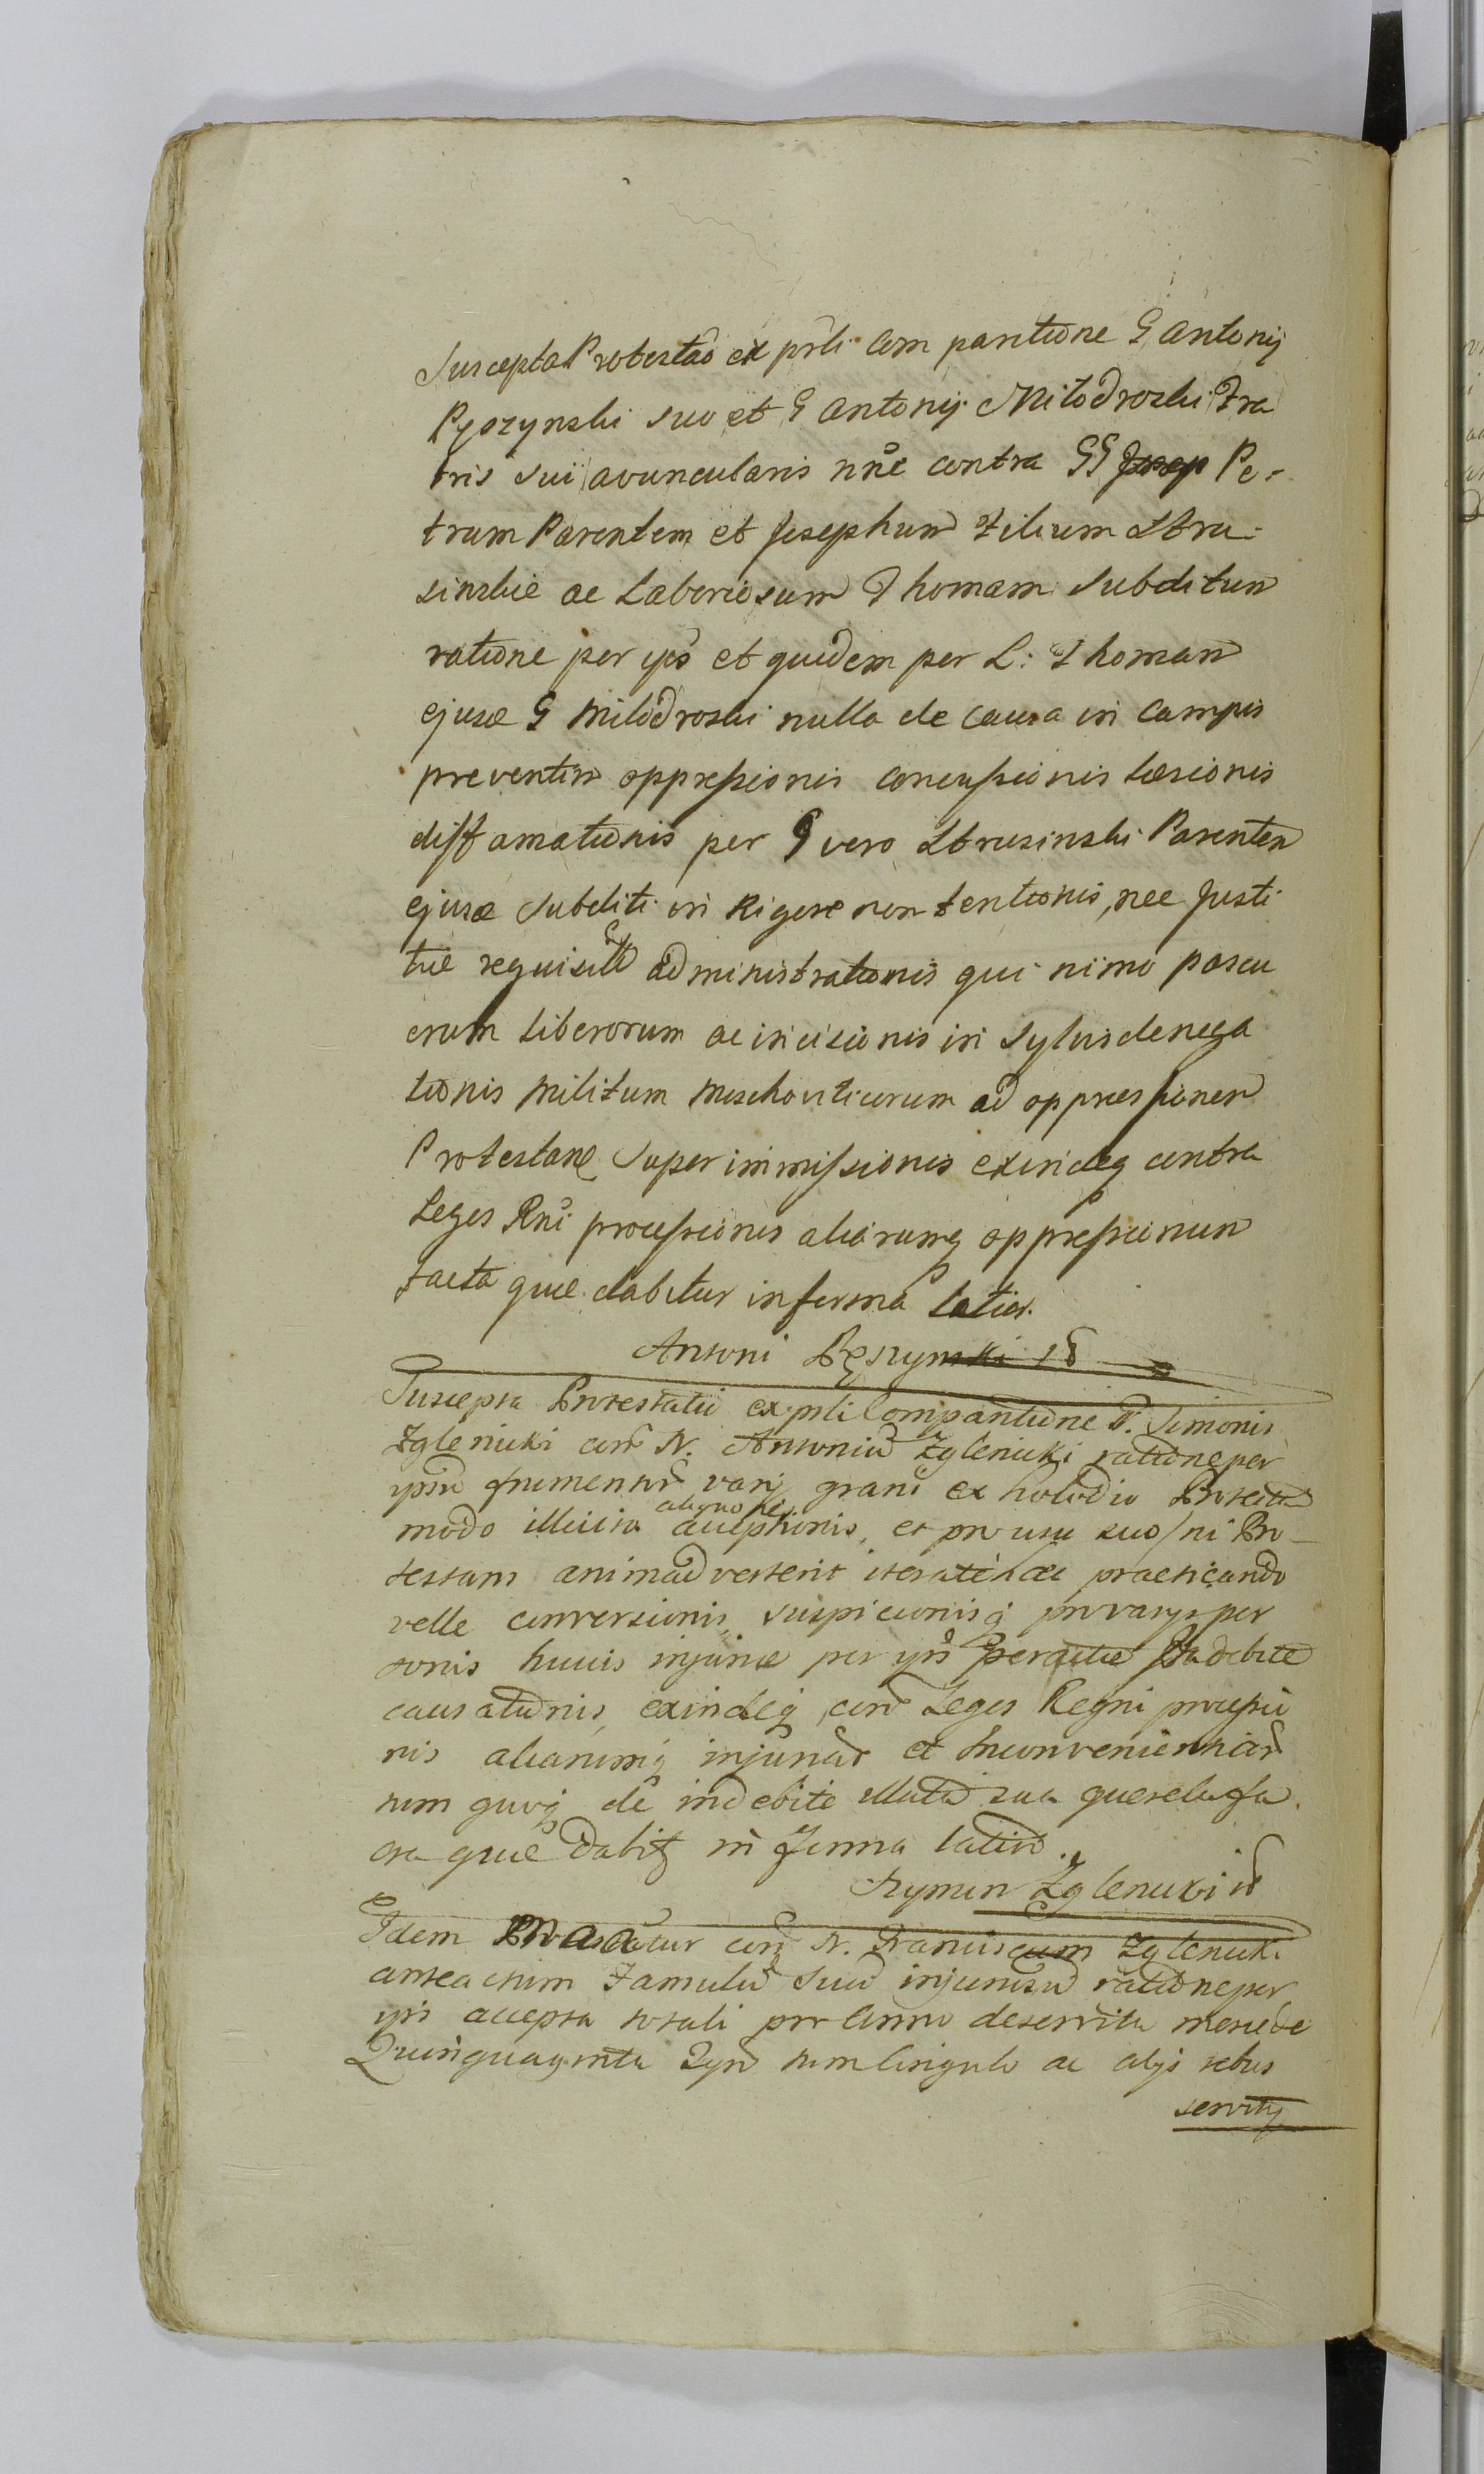 Suscepta Protestao ex prli Com paritione G Antonij
Pęszynski suo et G Antonij Miłodroski Fra
tris sui avuncularis nne contra GG Josep Pe-
trum Parentem et Josephum Filium Stru-
sinskie ac Laboriosum Thomam Subditum
ratione per ips et quidem per L: Thomam
ejusd G Miłodroski nulla de causa in Campis
preventim oppressionis concussionis læsionis
diffamationis per G vero Strusinski Parentem
ejusd Subditi in Rigore non tentionis, nec Justi
tie requisite administrationis qui nimo pascu
erum liberorum ac incisionis in sylvis denega
tionis Militum Moschoviticorum ad oppressionem
Protestan Super immissionis exindeq contra
Leges Rni processionis aliarumq oppressionum
facta que dabitur in forma latior.
Antoni Pęszynski
Suscepta Protestatio ex prli Comparitione N. Simonis
Zglenicki con N. Antonium Zglenicki ratione per
ipsu frumentor varij grani ex
modo illicito aliquoties acceptionis, et pro usu suo / ni Pro-
testans animadverterit iterate hæc practicando
velle conversionis, suspicionisq pro varijs per
sonis huius injuriæ per ips peractæ indebite
causationis, exindeq con Leges Regni processio
nis aliarumq injuriar et Inconvenientiar
tum quoq de indebite illata sua querela fa
cta que dabitz in forma latiori.
Szymon Zglenicki
Idem Protestatur con N. Franciscum Zglenicki
antea enim Famulu suu injuriosu ratione per
ips accepta totali pro Anno deservito mercede
Quinquaginta Tyn cum Cingulo ac alijs rebus
servitij